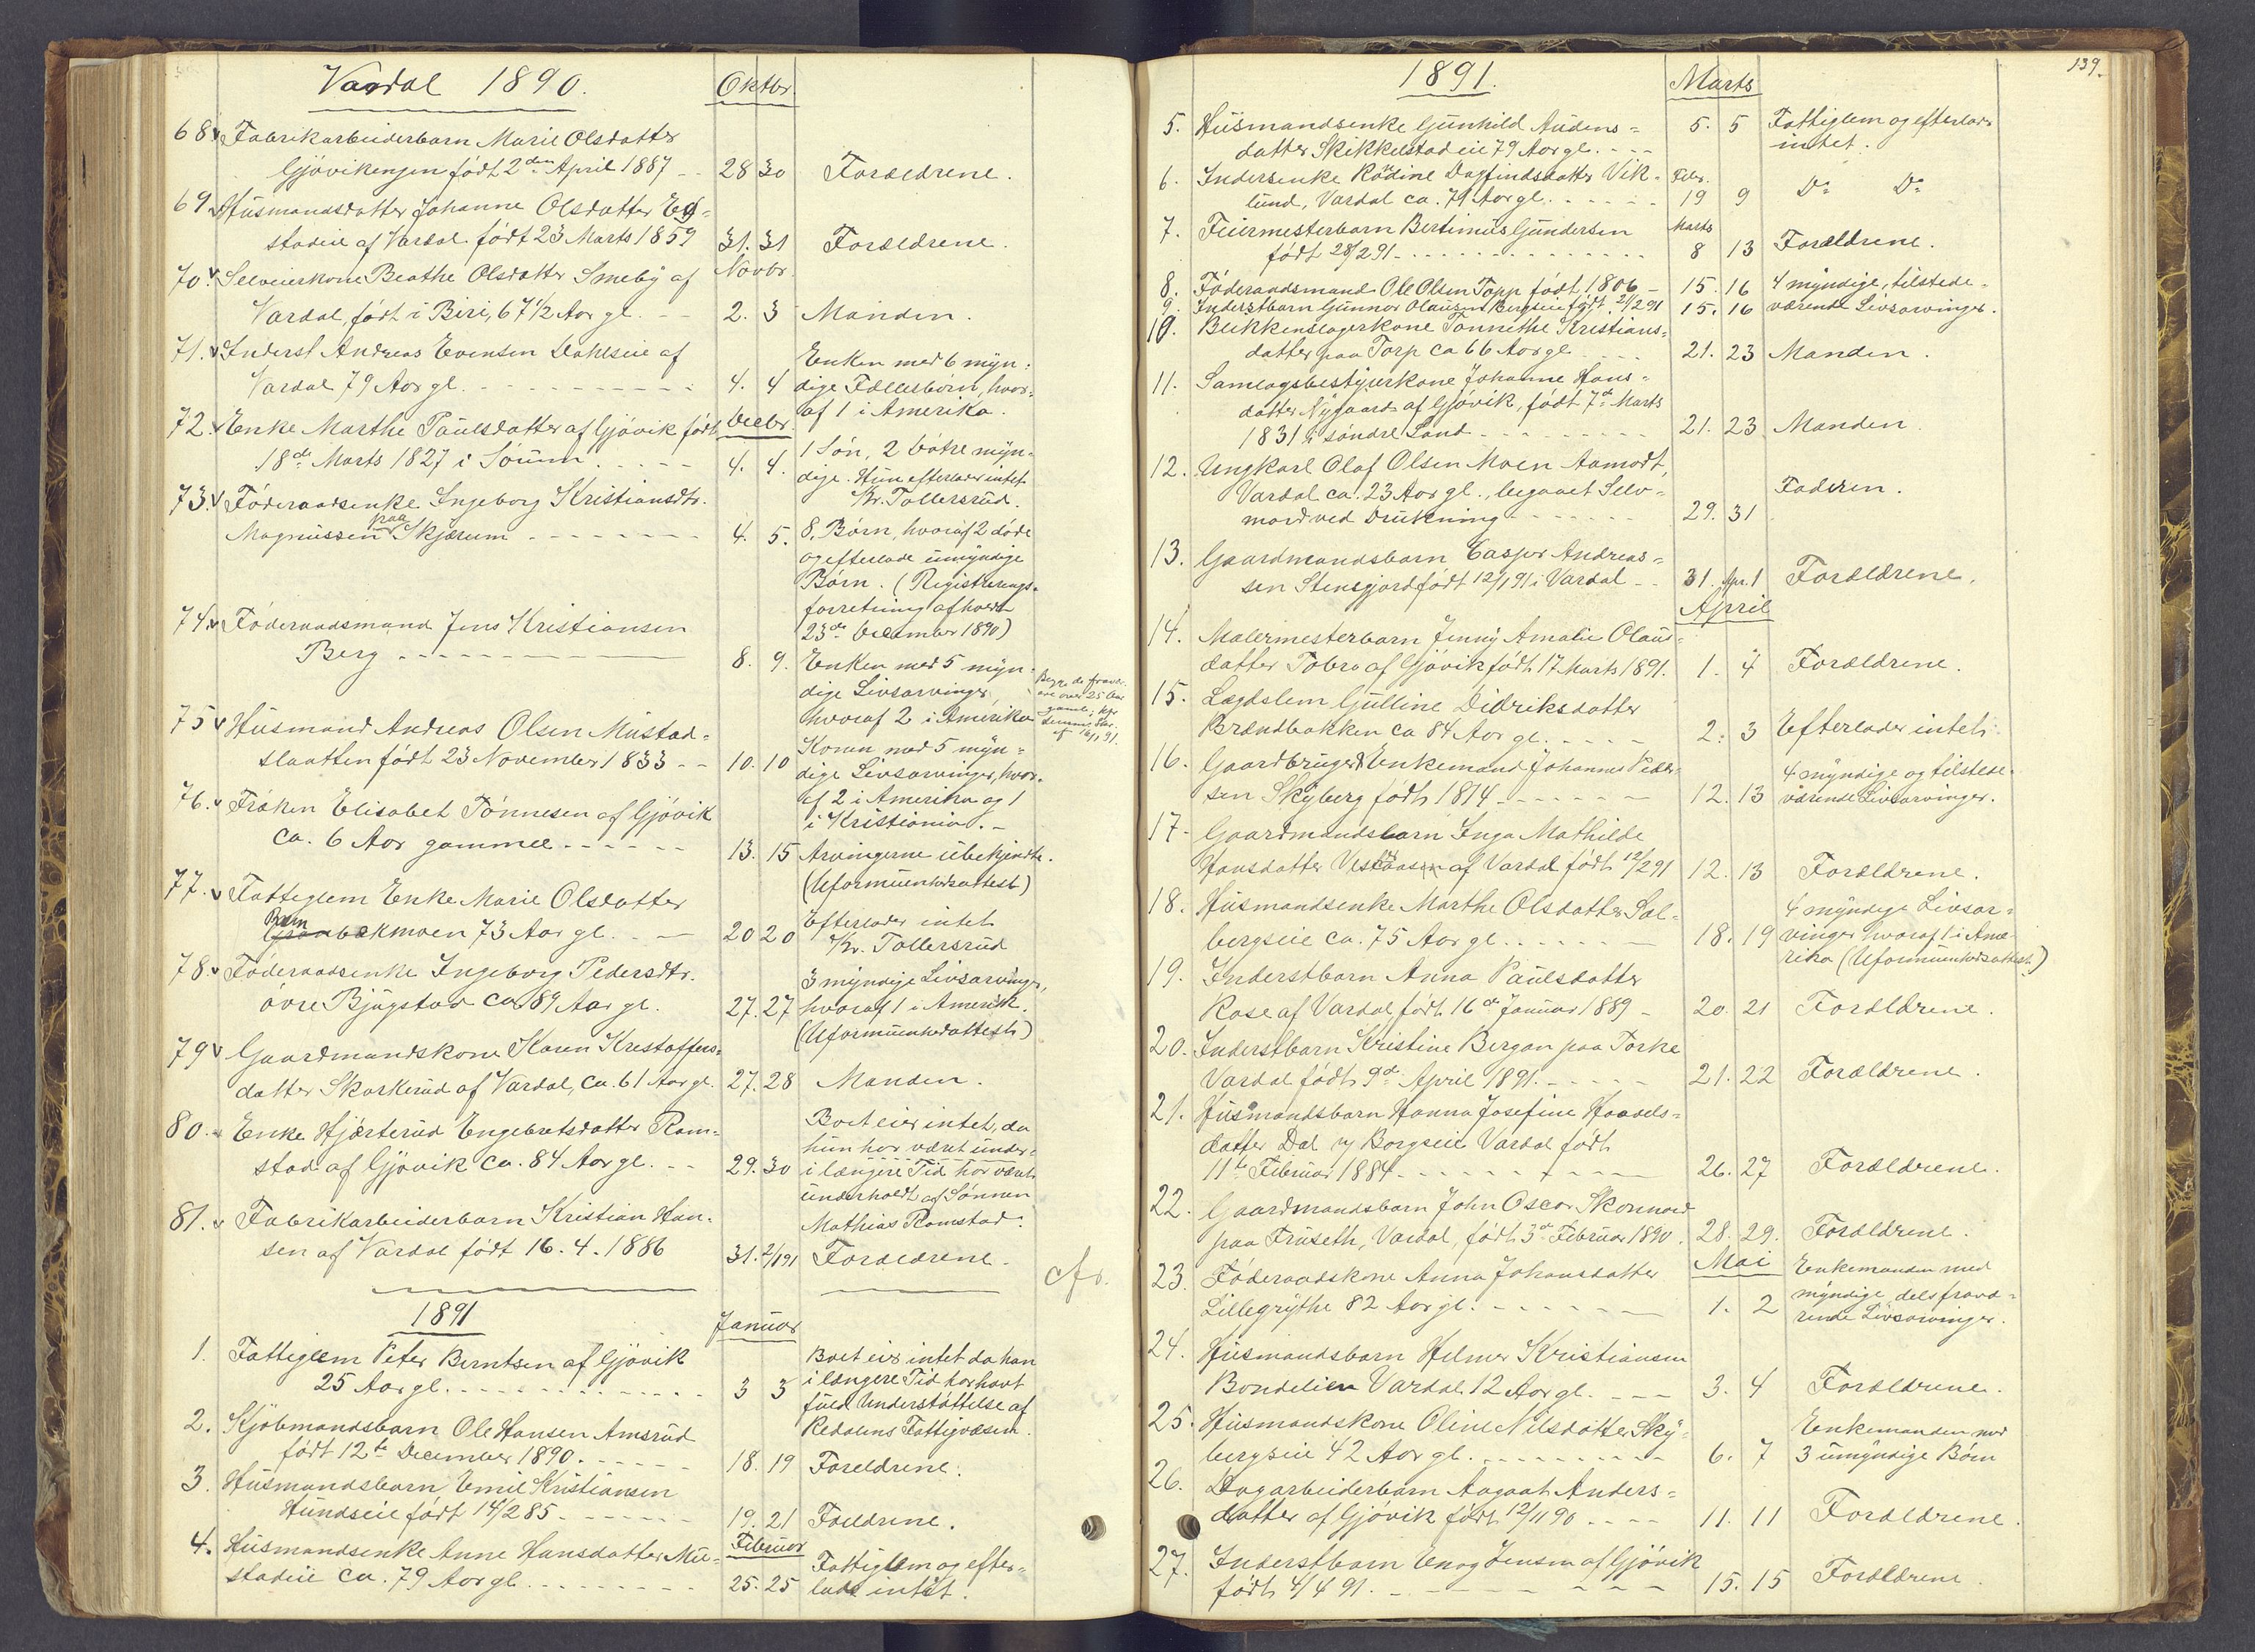 Vardal 1890.
Oktbr
68. Fabrikarbeiderbarn Marie Olsdatter
Gjøvikengen født 2den April 1887 28 30 Forældrene.
69. Husmandsdatter Johanne Olsdatter Eg-
stadeie af Vardal født 23 Marts 1859 31. 31 Forældrene.
Novbr.
70. Selveierkone Beathe Olsdatter Smeby af
Vardal, født i Biri, 67 1/2 Aar gl. 2. 3 Manden.
71. Inderst Andreas Evensen Dahlseie af
Vardal 79 Aar gl. 4. 4
Enken med 6 myn-
dige Fællesbørn, hvor-
af 1 i Amerika.
Decbr.
72. Enke Marthe Paulsdatter af Gjøvik født
18de Marts 1827 i Sørum 4. 4.
1 Søn, 2 Døtre myn-
dige. Hun efterlader intet
Kr. Tollersrud.
73. Føderaadsenke Ingeborg Kristiansdtr.
Magnussen paa Skjærum 4. 5.
8 Børn, hvoraf 2 døde
og efterlade umyndige
Børn. (Registrerings-
forretning afholdt
23de December 1890)
74. Føderaadsmand Jens Kristiansen
Berg 8. 9.
Enken med 5 myn-
dige Livsarvinger,
hvoraf 2 i Amerika
75 Husmand Andreas Olsen Mustad-
slaatten født 23 November 1833 10. 10
Konen med 5 myn-
dige Livsarvinger, hvor-
af 2 i Amerika og 1
i Kristiania.
76. Frøken Elisabet Tønnesen af Gjøvik
ca. 6 Aar gammel 13. 15 Arvingerne ubekjendte.
(Uformuenhedsattest)
77. Fattiglem Enke Marie Olsdatter
bækmoen 73 Aar gl. 20 20
Efterlader intet
Kr. Tollersrud
78. Føderaadsenke Ingeborg Pedersdtr.
øvre Bjugstad ca 89 Aar gl. 27. 27
3 myndige Livsarvinger,
hvoraf 1 i Amerik.
(Uformuenhedattest)
79 Gaardmandskone Karen Kristoffers-
datter Skarkerud af Vardal, ca. 61 Aar gl. 27. 28 Manden.
80. Enke Hjørterud Engebretsdatter Ram-
stad af Gjøvik ca. 84 Aar gl. 29. 30
Boet eier intet, da
hun har været under-
i længere Tid har været
underholdt af Sønnen
Mathias Ramstad.
81. Fabrikarbeiderbarn Kristian Han-
sen af Vardal født 16.4.1886 31. 2/1 91 Forældrene.
cfr.
1891
Januar
1. Fattiglem Peter Berntsen af Gjøvik
25 Aar gl. 3 3
Boet eier intet da han
i længere Tid har havt
fuld Understøttelse af
Redalens Fattigvæsen.
2. Kjøbmandsbarn Ole Hansen Amsrud
født 12te December 1890. 18. 19 Foreldrene.
3. Husmandsbarn Emil Kristiansen
Hundseie født 14/2 85 19. 21 Foreldrene.
Februar
4. Husmandsenke Anne Hansdatter Mu-
stadeie ca. 79 Aar gl. 25. 25
Fattiglem og efter-
lader intet.
139.
1891.
Marts
5. Husmandsenke Gunhild Audens-
datter Skikkelstadeie 79 Aar gl. 5. 5
Fattiglem og efterlader
intet.
6. Indersenke Dagfindsdatter Vik-
lund, Vardal ca. 79 Aar gl. Febr. 19 9 Do Do
7. Feiermesterbarn Bertinius Gundersen
født 28/2 91 Marts 8 13 Forældrene.
8. Føderaadsmand Ole Olsen Topp født 1806 15. 16 4 myndige, tilstede-
9. Inderstbarn Gunnar Olausen Bergseie født 21/2 91 15. 16 værende Livsarvinger.
10. Blikkenslagerkone Tonnethe Kristians-
datter paa Torp ca 66 Aar gl. 21. 23 Manden.
11. Samlagsbestyrerkone Johanne Hans-
datter Nygaard af Gjøvik, født 7de Marts
1831 i søndre Land 21. 23 Manden.
12. Ungkarl Olaf Olsen Moen Aamodt,
Vardal ca. 23 Aar gl., begaaet Selv-
mord ved Drukning 29. 31 Faderen.
13. Gaardmandsbarn Casper Andreas-
sen Stensgjord født 12/1 91 i Vardal 31. Apr. 1 Forældrene.
April
14. Malermesterbarn Jenny Amalie Olaus-
datter Tobro af Gjøvik født 17 Marts 1891. 1. 4 Forældrene.
15. Lægdslem Gulline Didriksdatter
Brændbakken ca 84 Aar gl. 2. 3 Efterlader intet.
16. Gaardbruger & Enkemand Johannes Peder-
sen Skyberg født 1814 12. 13
4 myndige og tilstede-
værende Livsarvinger.
17. Gaardmandsbarn Inga Mathilde
Hansdatter af Vardal født 12/2 91 12. 13 Forældrene.
18. Husmandsenke Marthe Olsdatter Sol-
bergseie ca. 75 Aar gl. 18. 19
4 myndige Livsar-
vinger hvoraf 1 i Ame-
rika (Uformuenhedsattest)
19. Inderstbarn Anna Paulsdatter
Rose af Vardal født 16de Januar 1889 20. 21 Forældrene.
20. Inderstbarn Kristine Bergan paa Torke
Vardal født 9de April 1891. 21. 22 Forældrene.
21. Husmandsbarn Hanna Josefine Haavels-
datter Dal Borgseie Vardal født
11te Februar 1884 26. 27 Forældrene.
22. Gaardmandsbarn John Oscar Skonnord
paa Fruseth, Vardal, født 3de Februar 1890. 28. 29. Forældrene.
Mai
23. Føderaadskone Anna Johansdatter
Lillegrythe 82 Aar gl. 1. 2
Enkemanden med
myndige, dels fravæ-
rende Livsarvinger.
24. Husmandsbarn Helmer Kristiansen
Bondelien Vardal 12 Aar gl. 3. 4 Forældrene.
25. Husmandskone Oline Nilsdatter Sky-
bergseie 42 Aar gl. 6. 7
Enkemanden med
3 umyndige Børn
26. Dagarbeiderbarn Aagaat Anders-
datter af Gjøvik født 12/11 90 11. 11 Forældrene.
27. Inderstbarn Enog Jensen af Gjøvik
født 4/4 91. 15. 15 Forældrene.